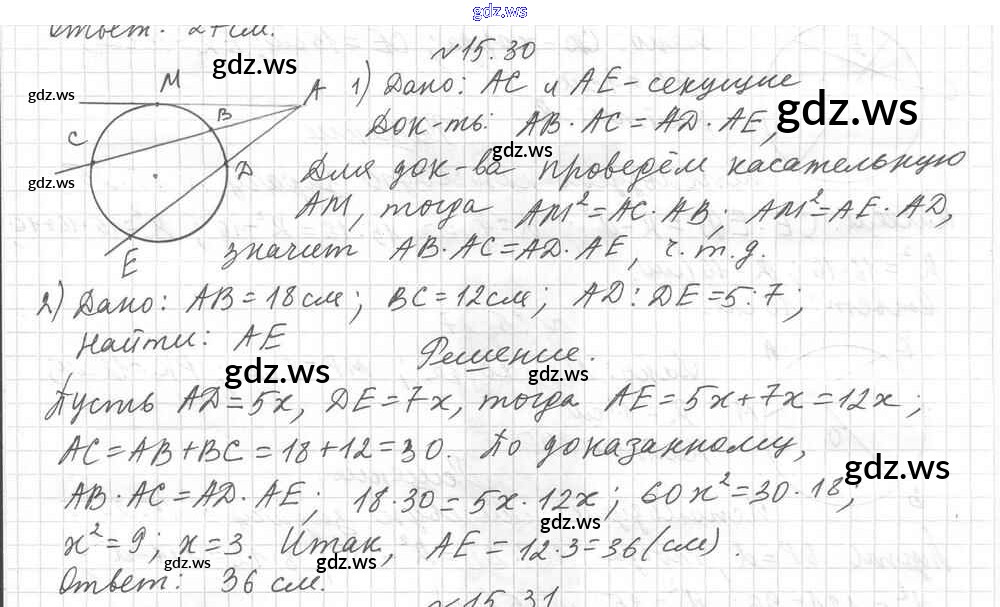 gdz.ws
Ответ: 24 см.
№15.30
gdz.ws
M
A
1) Дано: AC и AE - секущие
gdz.ws
B
gdz.ws
C
Док-ть: AB · AC = AD · AE,
gdz.ws
D
Для док-ва проведём касательную
gdz.ws
AM, тогда AM² = AC · AB; AM² = AE · AD,
E
значит AB · AC = AD · AE, ч.т.д.
2) Дано: AB = 18 см; BC = 12 см; AD : DE = 5 : 7;
Найти: AE
Решение.
gdz.ws
gdz.ws
Пусть AD = 5x, DE = 7x, тогда AE = 5x + 7x = 12x;
AC = AB + BC = 18 + 12 = 30. По доказанному,
gdz.ws
AB · AC = AD · AE; 18 · 30 = 5x · 12x; 60x² = 30 · 18;
gdz.ws
x² = 9; x = 3. Итак, AE = 12 · 3 = 36 (см).
gdz.ws
gdz.ws
Ответ: 36 см.
№15.31